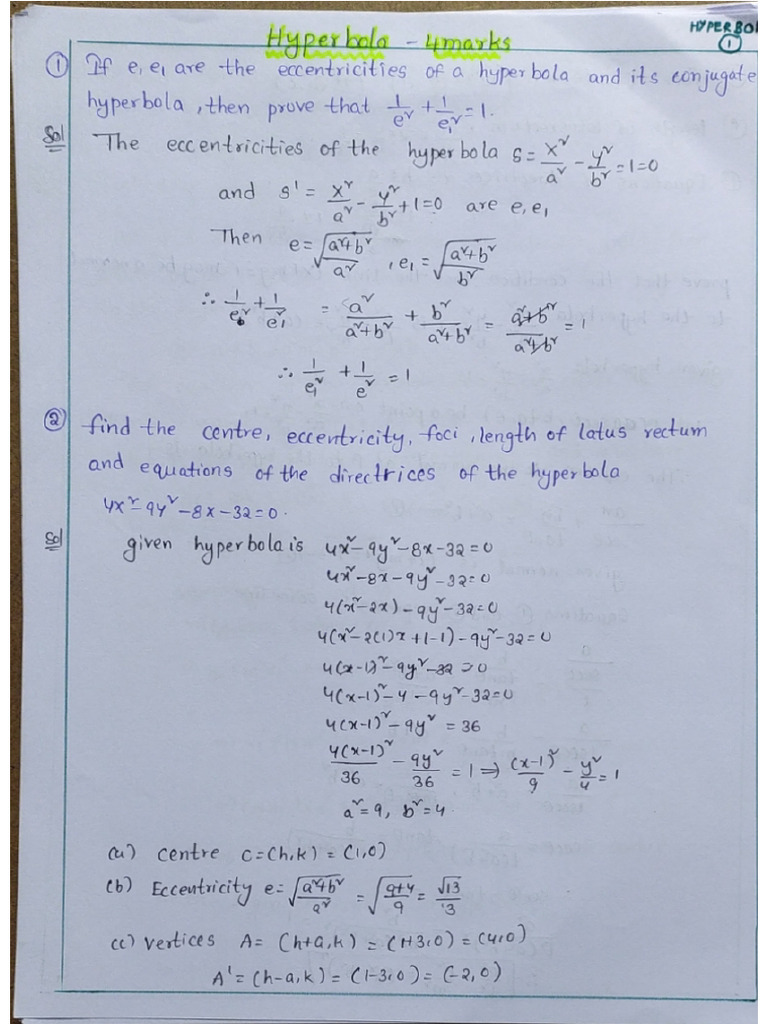 HYPERBO
①
Hyperbola - 4marks
① If e, e₁ are the eccentricities of a hyperbola and its conjugate
hyperbola, then prove that 1/e² + 1/e₁² = 1.
Sol The eccentricities of the hyperbola S = x²/a² - y²/b² = 1 = 0
and S' = x²/a² - y²/b² + 1 = 0 are e, e₁
Then e = √(a²+b²/a²), e₁ = √(a²+b²/b²)
∴ 1/e² + 1/e₁² = a²/a²+b² + b²/a²+b² = a²+b²/a²+b² = 1
∴ 1/e₁² + 1/e² = 1
② find the centre, eccentricity, foci, length of latus rectum
and equations of the directrices of the hyperbola
4x² - 9y² - 8x - 32 = 0.
Sol given hyperbola is 4x² - 9y² - 8x - 32 = 0
4x² - 8x - 9y² - 32 = 0
4(x² - 2x) - 9y² - 32 = 0
4(x² - 2(1)x + 1 - 1) - 9y² - 32 = 0
4(x-1)² - 9y² - 32 = 0
4(x-1)² - 4 - 9y² - 32 = 0
4(x-1)² - 9y² = 36
4(x-1)²/36 - 9y²/36 = 1 ⇒ (x-1)²/9 - y²/4 = 1
a² = 9, b² = 4
(a) centre C = (h,k) = (1,0)
(b) Eccentricity e = √(a²+b²/a²) = √(9+4/9) = √13/3
(c) vertices A = (h+a, k) = (1+3, 0) = (4,0)
A' = (h-a, k) = (1-3, 0) = (-2, 0)